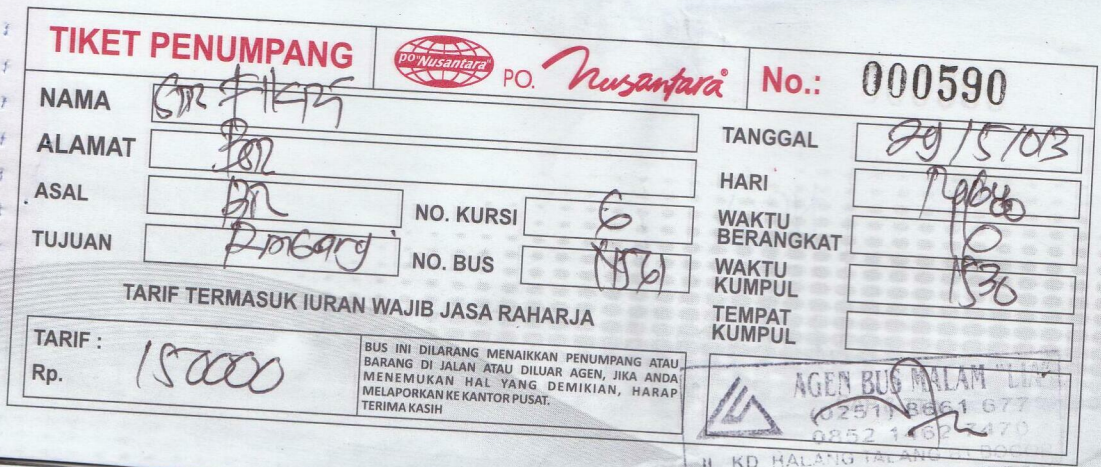 TIKET PENUMPANG
po"Nusantara"
PO. Nusantara
No.: 000590
NAMA
ALAMAT
ASAL
TUJUAN
NO. KURSI 6
NO. BUS
TANGGAL 29/5/013
HARI
WAKTU
BERANGKAT
WAKTU
KUMPUL 1530
TEMPAT
KUMPUL
TARIF TERMASUK IURAN WAJIB JASA RAHARJA
TARIF :
Rp. 150000
BUS INI DILARANG MENAIKKAN PENUMPANG ATAU
BARANG DI JALAN ATAU DILUAR AGEN, JIKA ANDA
MENEMUKAN HAL YANG DEMIKIAN, HARAP
MELAPORKAN KE KANTOR PUSAT.
TERIMA KASIH
AGEN BUS MALAM
(0251) 8661 677
0852 1462 7470